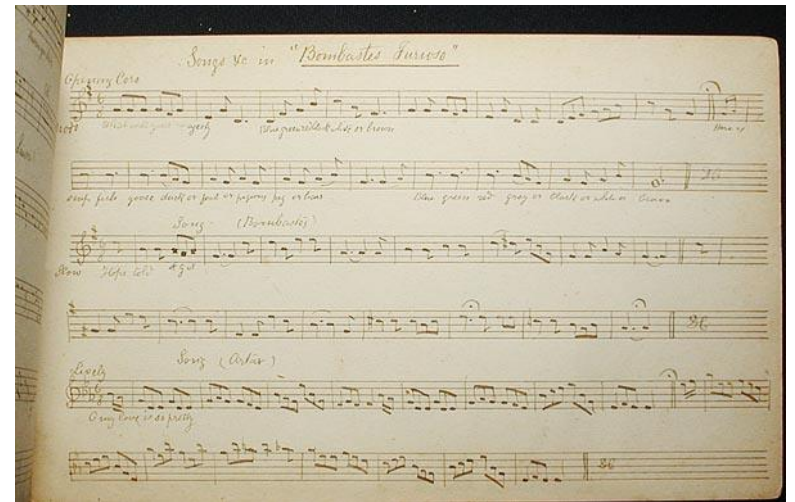 Songs &c in "Bombastes Furioso"
Opening Cors
What will your majesty Blue green red black white or brown
soup fish goose duck or fowl or pigeons pig or hare Blue green red grey or black or white or brown
Song - (Bombastes)
Slow Hope told
Song (Artax)
Lively
O my love is so pretty